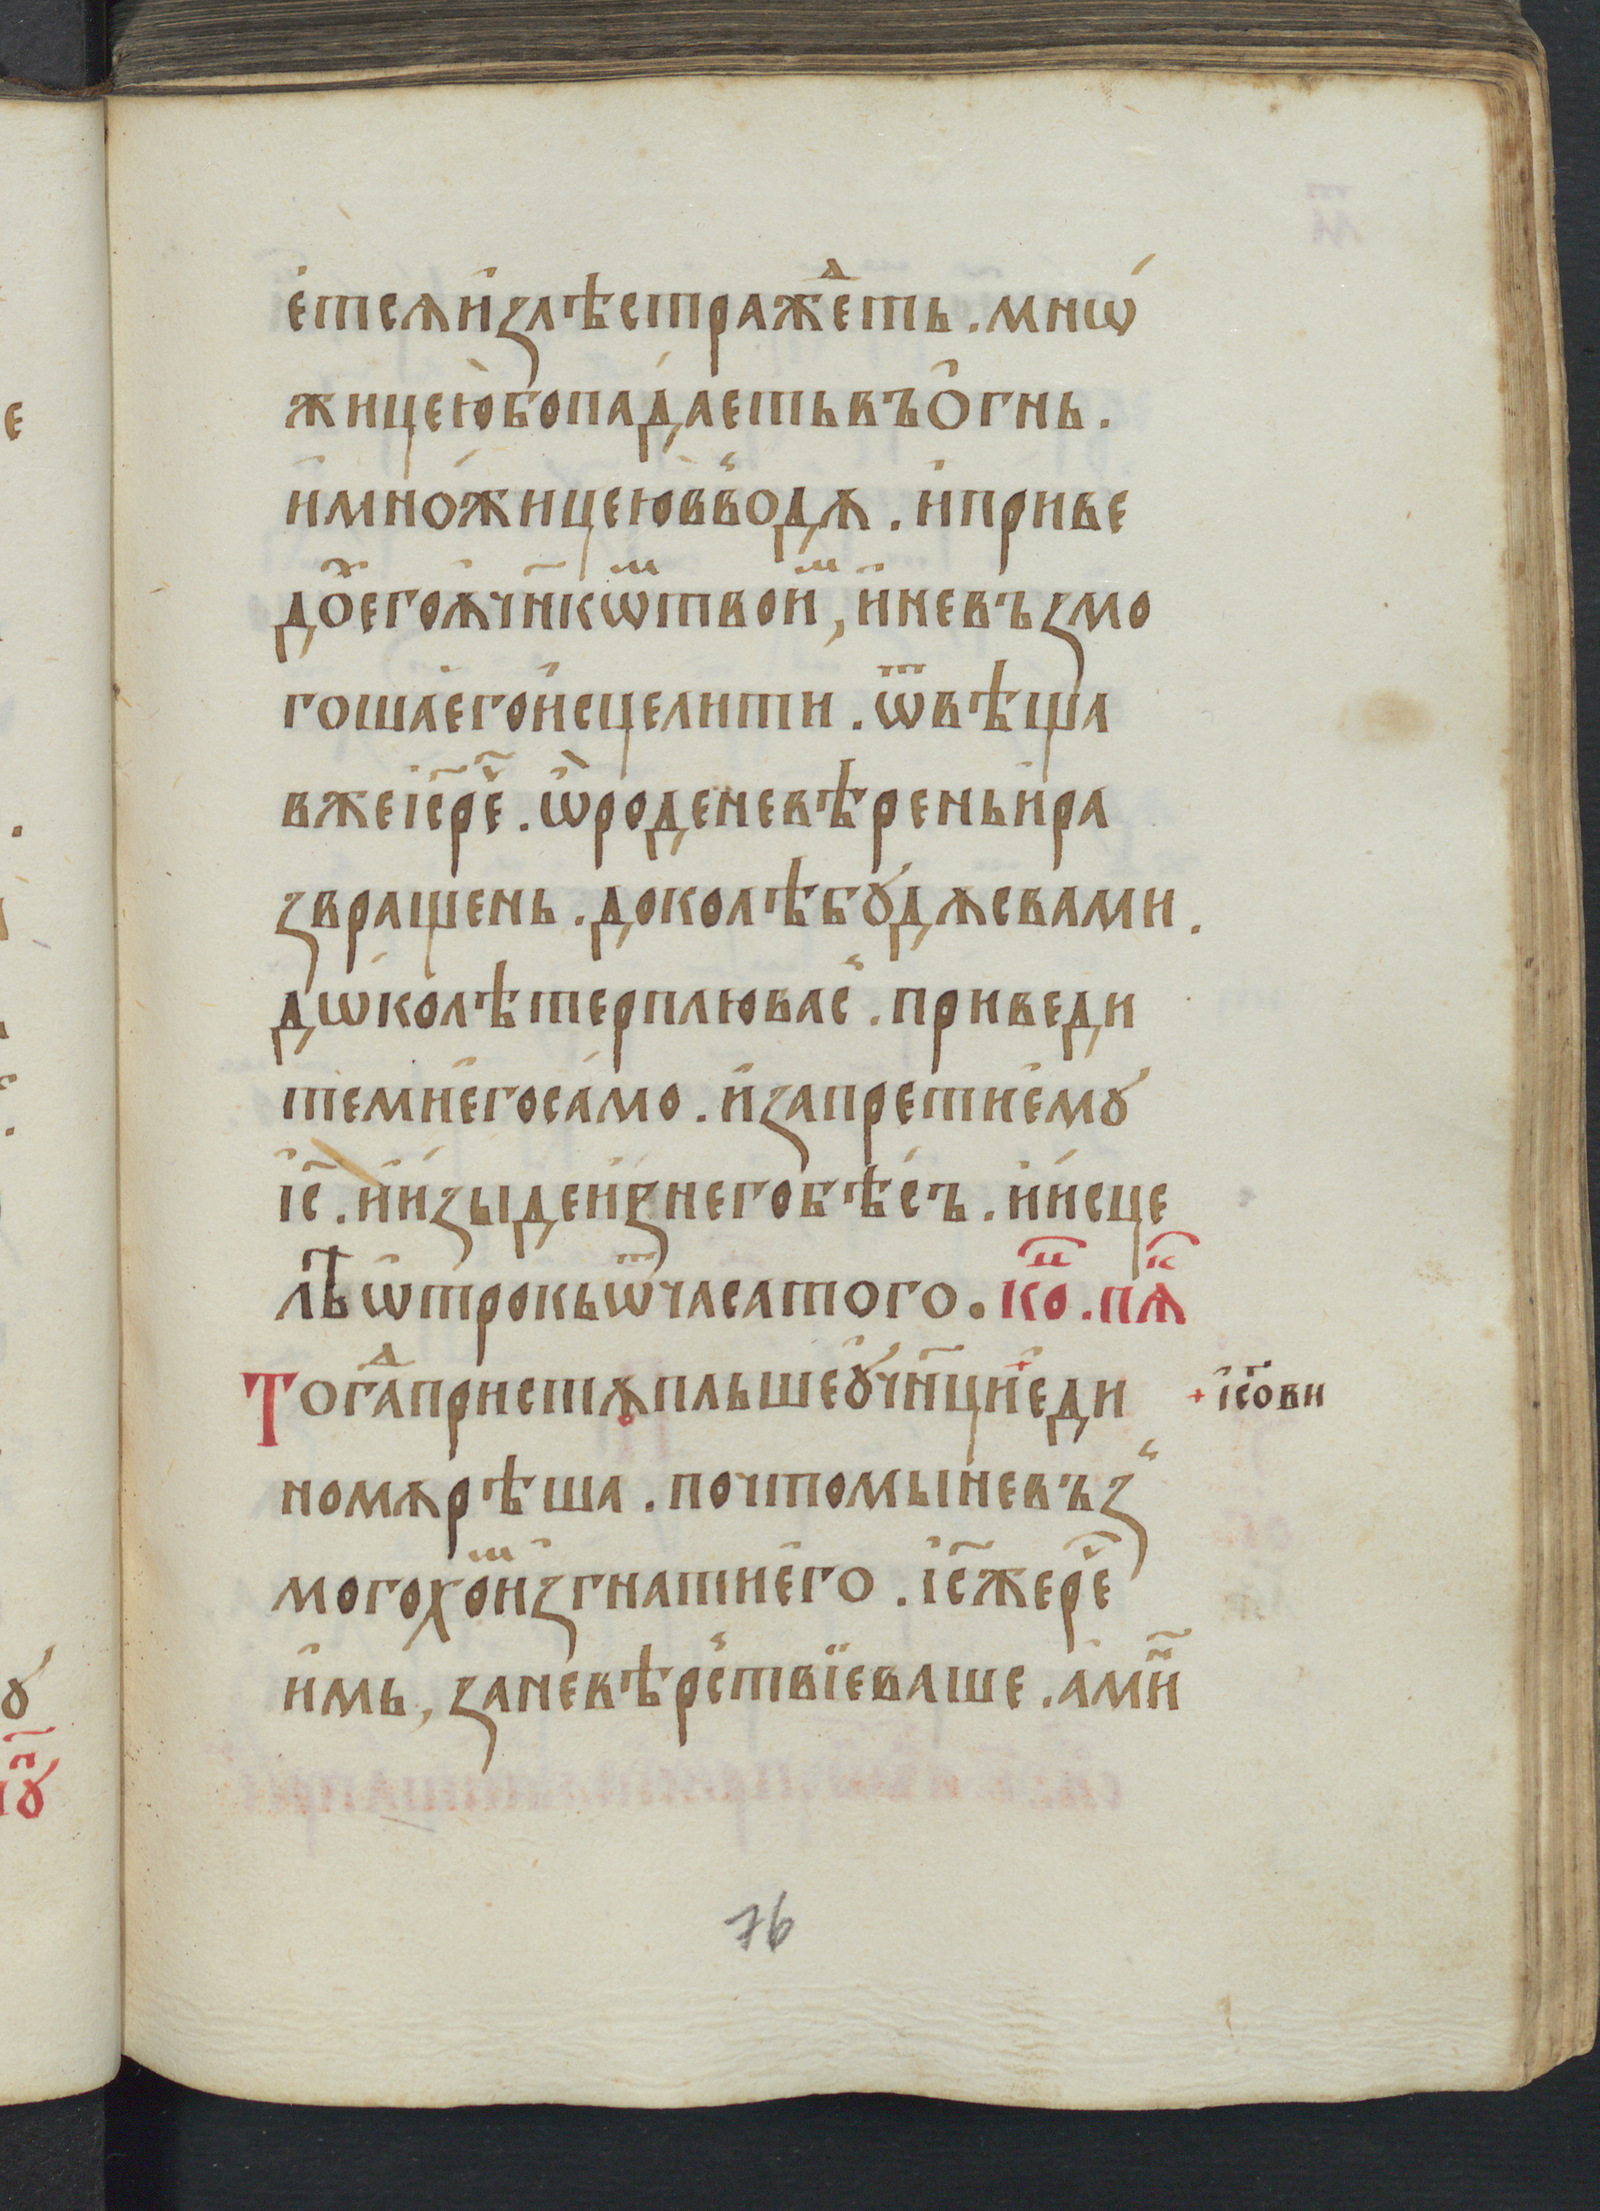 етсѧ и҆ꙁлѣ страже́ⷣть . мнѡ́
жицею бо падаеть въ ѻ҆гнь .
и҆ мно́жицею в во́дѫ . и҆ приве
до́ⷯ его ѫч҃нкѡⷨ твои́ⷨ , и҆ не въꙁмо
гоша его исцелити . ѿвѣща
вже і҆с҃ реⷱ҇ . ѡ҆ роде невѣрень и ра
ꙁвращень . доколѣ бꙋ́дѫ с вами .
дѡколѣ терплю вас̾ . приведи
те мнѣ его само . и҆ ꙁапрети емꙋ
і҆с҃ . и҆ и҆ꙁыде иꙁ него бѣсъ . и҆ и҆сце
лѣ ѡ҆трокь ѿ часа того . коⷰ҇ . пѧⷦ҇
Тогаⷣ пристѫпльше ꙋ҆ч҃нци + еди
номѫ рѣша . почто мы не въꙁ̾
могохоⷨ и҆ꙁгнати его . і҆с҃ же реⷱ҇
+ і҆с҃ови
и҆мь , ꙁа невѣрс̾твїе ваше . аминⷩ҇
76